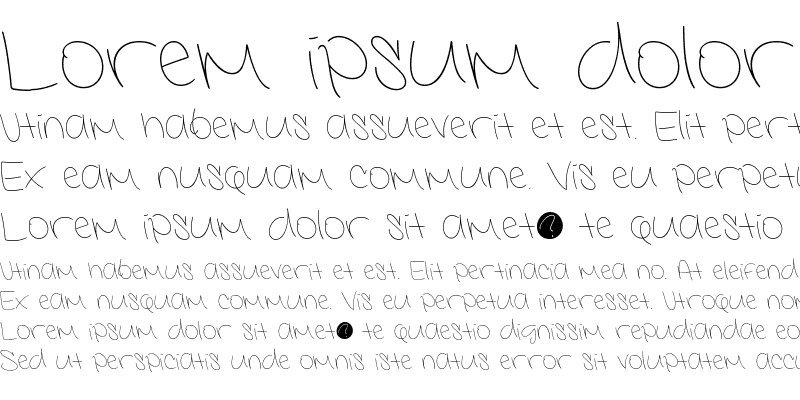 Lorem ipsum dolor
Utinam habemus assueverit et est. Elit pert
Ex eam nusquam commune. Vis eu perpetu
Lorem ipsum dolor sit amet? te quaestio
Utinam habemus assueverit et est. Elit pertinacia mea no. At eleifend
Ex eam nusquam commune. Vis eu perpetua interesset. Utroque non
Lorem ipsum dolor sit amet? te quaestio dignissim repudiandae eo
Sed ut perspiciatis unde omnis iste natus error sit voluptatem accu